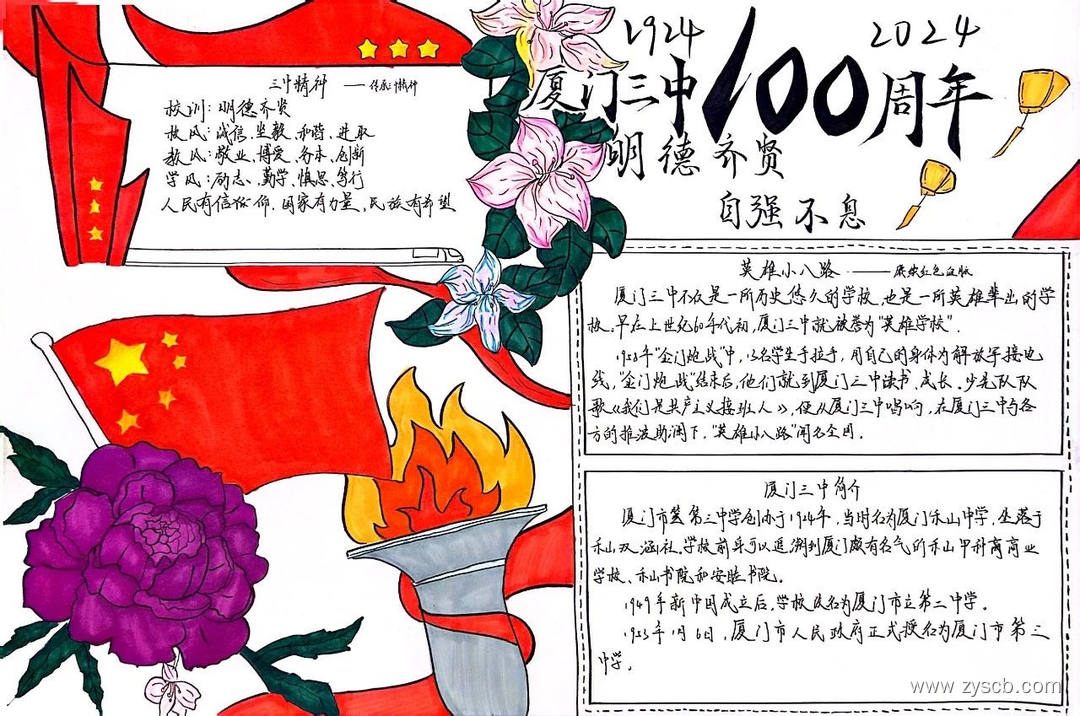 1924
2024
厦门三中100周年
明德齐贤
自强不息
三中精神
校训:明德齐贤
校风:诚信、坚毅、和谐、进取
教风:敬业、博爱、务本、创新
学风:励志、勤学、慎思、笃行
人民有信仰.国家有力量,民族有希望
英雄小八路——
厦门三中不仅是一所历史悠久的学校,也是一所英雄辈出的学
校,早在上世纪60年代初,厦门三中就被誉为"英雄学校".
1958年"金门炮战"中,13名学生手拉手,用自己的身体为解放军接电
线,"金门炮战"结束后,他们就到厦门三中读书、成长.少先队队
歌《我们是共产主义接班人》,便从厦门三中唱响,在厦门三中与各
方的推波助澜下,"英雄小八路"闻名全国.
厦门三中简介
厦门市第三中学创办于1924年,当时名为厦门禾山中学,坐落于
禾山双涵社.学校前身可以追溯到厦门颇有名气的禾山甲种商商业
学校、禾山书院和安胜书院.
1949年新中国成立后,学校改名为厦门市立第二中学.
年1月6日,厦门市人民政府正式授名为厦门市第三
中学.
www.zyscb.com